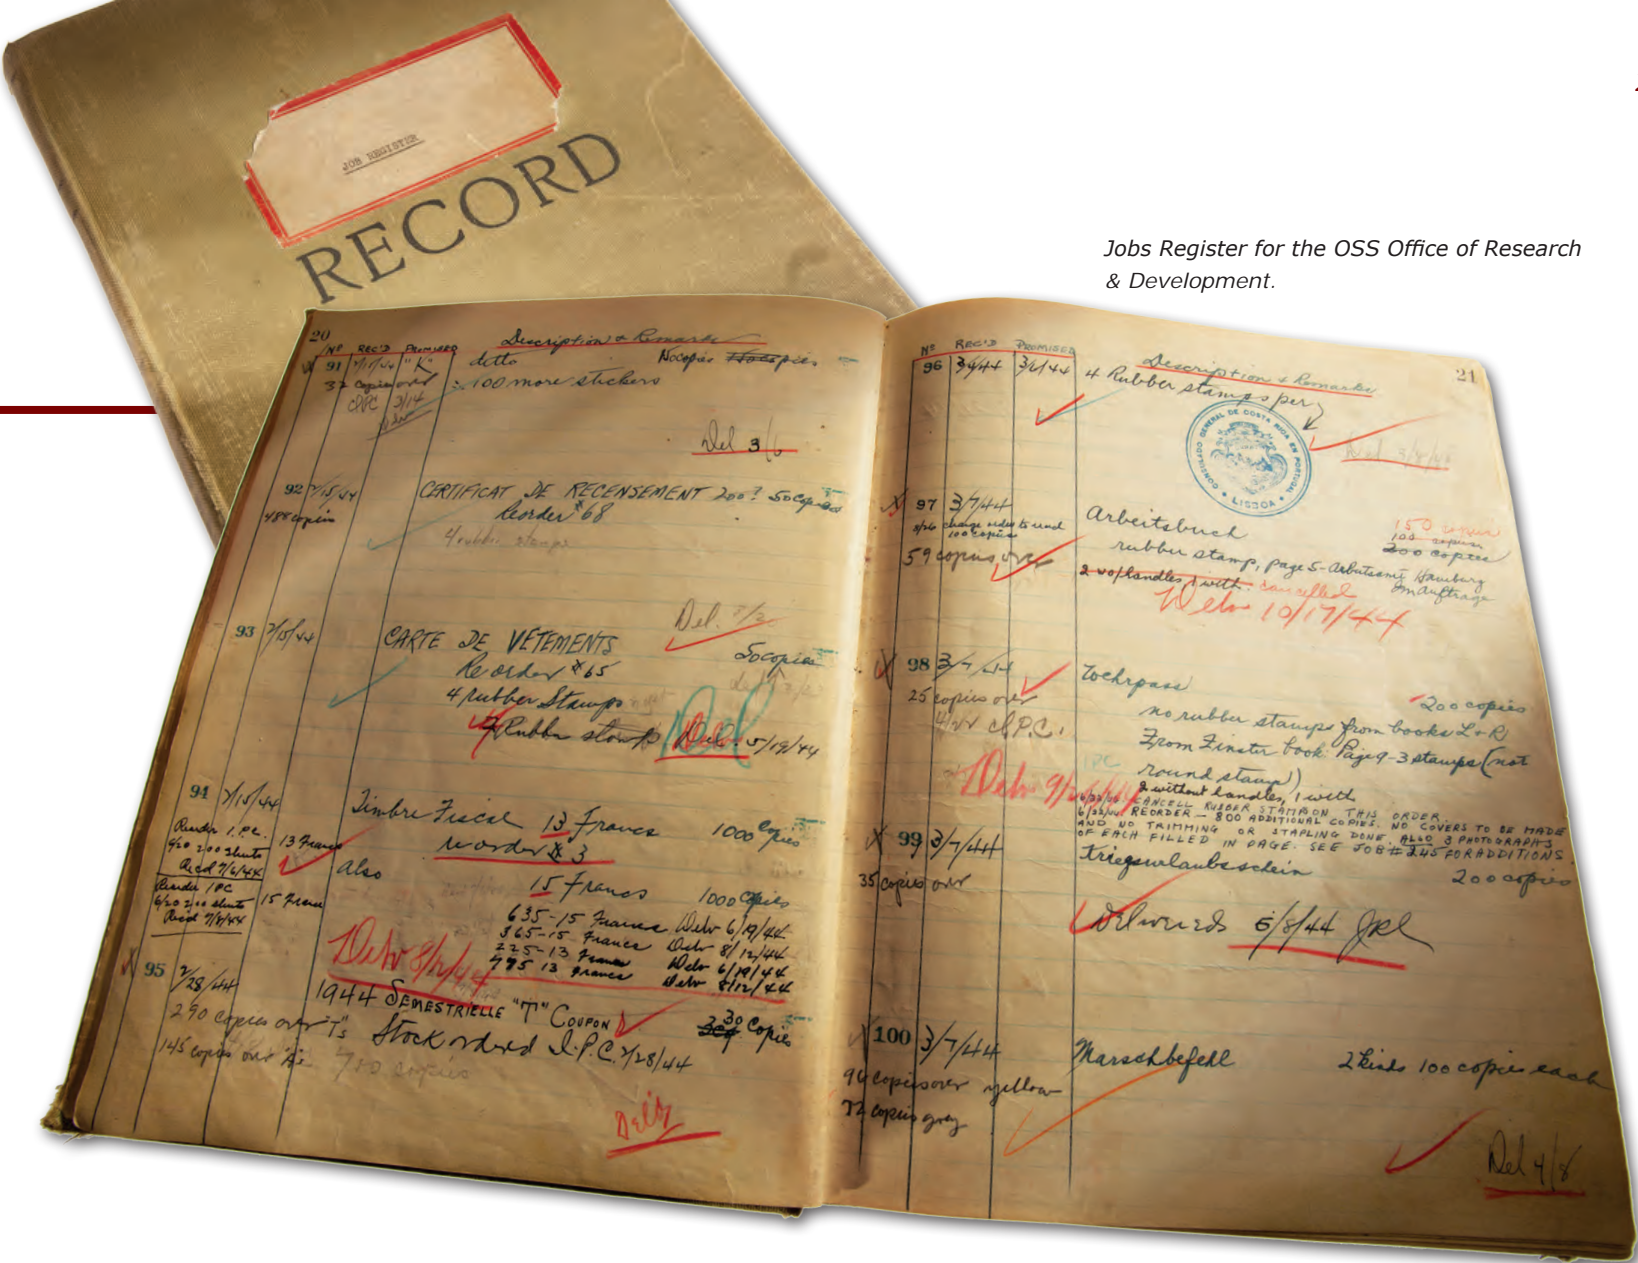 JOB REGISTER
RECORD
Jobs Register for the OSS Office of Research
& Development.
20
Nº REC'D PROMISED Description & Remarks
91 "K" ditto copies
32 copies over 100 more stickers
3/14
Del 3/6
92 2/15/44 CERTIFICAT DE RECENSEMENT 200? 50 copies
488 copies Reorder #68
4 rubber stamps
Del.
93 2/15/44 CARTE DE VÉTEMENTS 50 copies
Reorder #65
4 rubber Stamps
4 Rubber stamps Del. 5/19/44
94 2/15/44 Timbre Fiscal 13 Francs 1000 Copies
Reorder I.P.C. 13 Francs reorder #3
6/20 200 sheets
Recd 7/6/44 Also
15 Francs 1000 Copies
Reorder IPC 15 Francs
6/20 200 sheets
Recd 7/8/44
635-15 Francs Delv 6/19/44
365-15 Francs Delv 8/12/44
225-13 Francs Delv 6/19/44
775 13 Francs Delv 8/12/44
Delv 8/12/44
95 2/28/44 1944 SEMESTRIELLE "T" COUPON 30 Copies
290 copies over "T"s Stock ordered I.P.C. 2/28/44
145 copies over 700 copies
Delv
21
Nº REC'D PROMISED Description & Remarks
96 4 Rubber stamps per
CONSULADO GENERAL DE COSTA RICA EN PORTUGAL
LISBOA
Del 3/8/44
97 3/7/44 Arbeitsbuch 150 copies
3/26 change order to read 100 copies 100 copies
200 copies
59 copies over rubber stamp, page 5- Arbeitsamt Hamburg
Im Auftrage
2 w/o handles, 1 with. cancelled
Delv 10/17/44
98 3/7/44 200 copies
25 copies over no rubber stamps from books L & R
I.P.C. From Finster book. Page 9-3 stamps (not
round stamp)
2 without handles, 1 with
Delv
6/22/44 CANCELL RUBBER STAMP ON THIS ORDER.
6/22/44 REORDER - 800 ADDITIONAL COPIES. NO COVERS TO BE MADE
AND NO TRIMMING OR STAPLING DONE. ALSO 3 PHOTOGRAPHS
OF EACH FILLED IN PAGE. SEE JOB #245 FOR ADDITIONS.
99 3/7/44 Kriegsurlaubsschein 200 copies
35 copies over
Delivered 5/8/44
100 3/7/44 Marschbefehl 2 kinds 100 copies each
94 copies over yellow
72 copies grey
Del 4/8